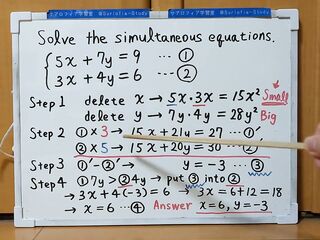 サブロフィア学習室 @Sarlofia-Study
Solve the simultaneous equations.
5x + 7y = 9 … ①
3x + 4y = 6 … ②
Step 1 delete x → 5x・3x = 15x² Small
delete y → 7y・4y = 28y² Big
Step 2 ①×3 → 15x + 21y = 27 … ①'
②×5 → 15x + 20y = 30 … ②'
Step 3 ①'-②' → y = -3 … ③
Step 4 ①7y > ②4y → put ③ into ②
→ 3x + 4(-3) = 6 → 3x = 6 + 12 = 18
→ x = 6 … ④ Answer x = 6, y = -3